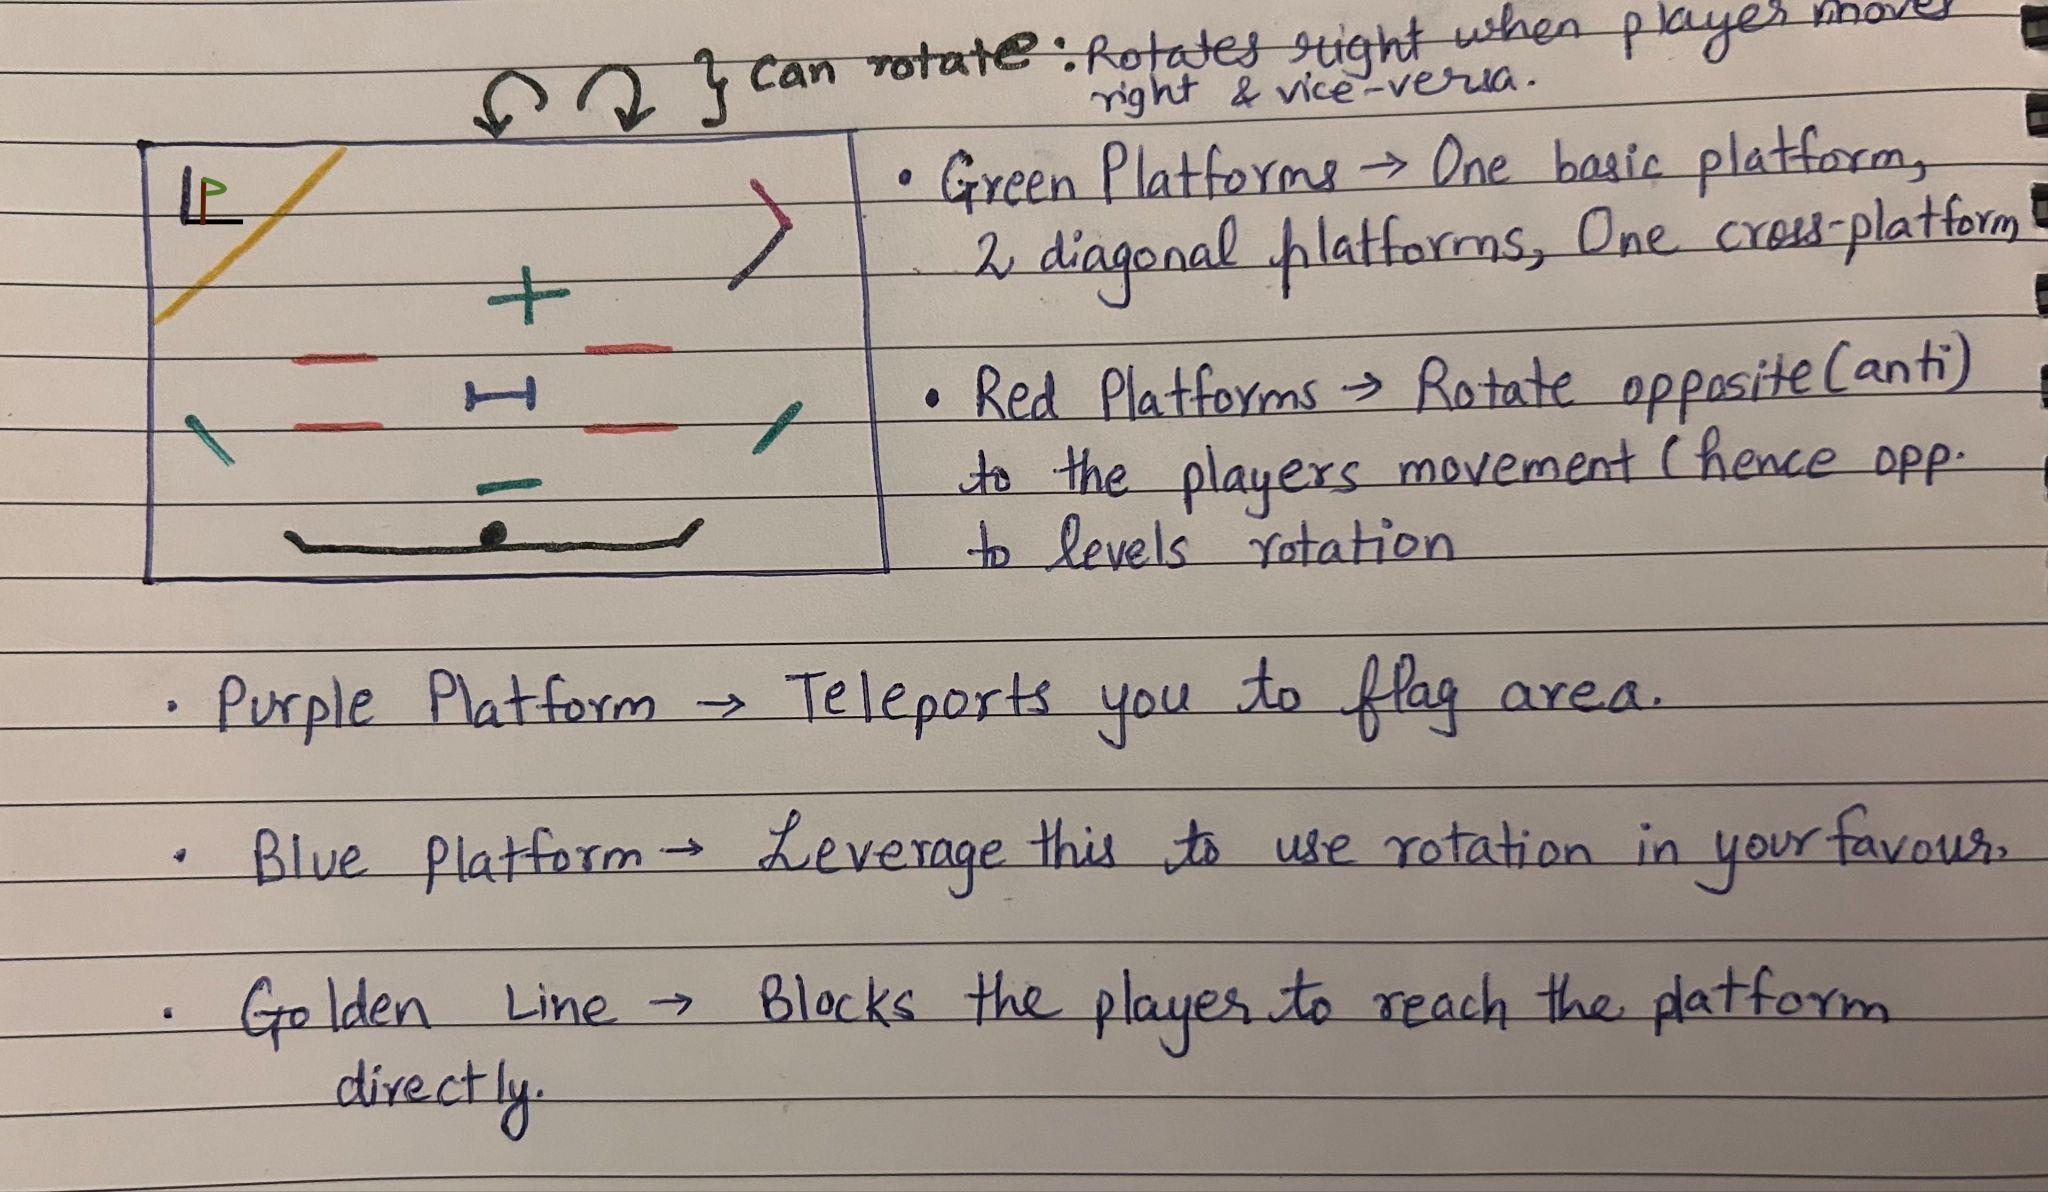 } can rotate : Rotates right when player moves
right & vice-versa.
• Green Platforms → One basic platform,
2 diagonal platforms, One cross-platform
• Red Platforms → Rotate opposite (anti)
to the players movement (hence opp.
to levels rotation
• Purple Platform → Teleports you to flag area.
• Blue Platform → Leverage this to use rotation in your favour.
• Golden Line → Blocks the player to reach the platform
directly.